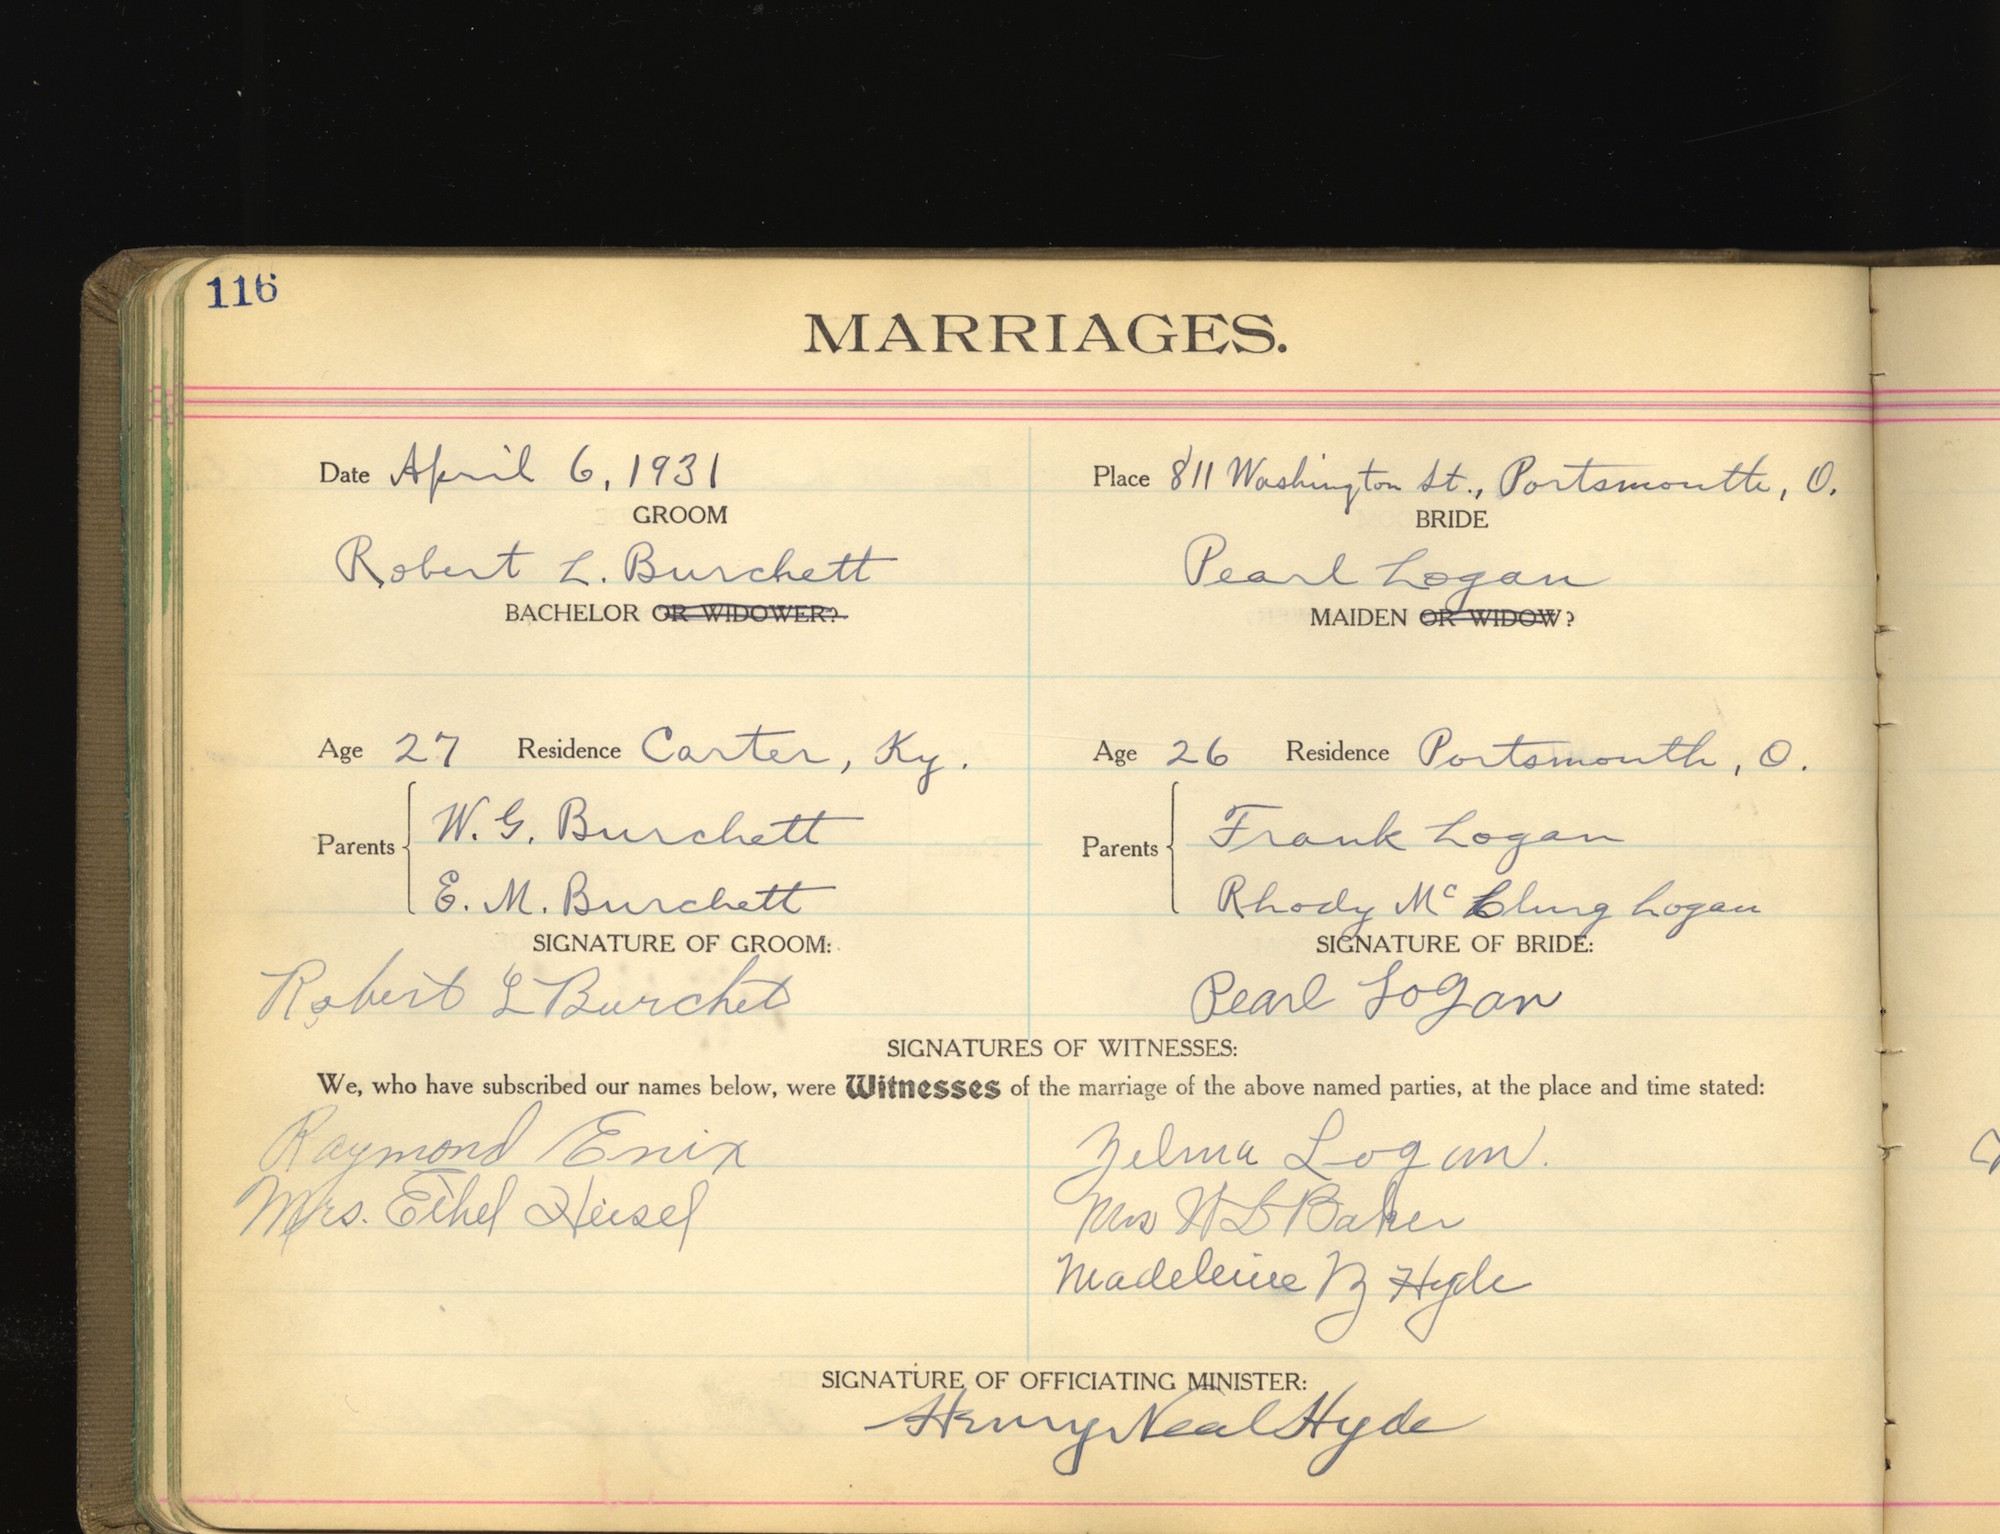 116
MARRIAGES.
Date April 6, 1931 Place 811 Washington St., Portsmouth, O.
GROOM BRIDE
Robert L. Burchett Pearl Logan
BACHELOR OR WIDOWER? MAIDEN OR WIDOW?
Age 27 Residence Carter, Ky. Age 26 Residence Portsmouth, O.
Parents W. G. Burchett Parents Frank Logan
E. M. Burchett Rhody McClung Logan
SIGNATURE OF GROOM: SIGNATURE OF BRIDE:
Robert L Burchet Pearl Logan
SIGNATURES OF WITNESSES:
We, who have subscribed our names below, were Witnesses of the marriage of the above named parties, at the place and time stated:
Raymond Enix Zelma Logan.
Mrs. Ethel Heisel Mrs H L Baker
Madeleine Z Hyde
SIGNATURE OF OFFICIATING MINISTER:
Henry Neal Hyde